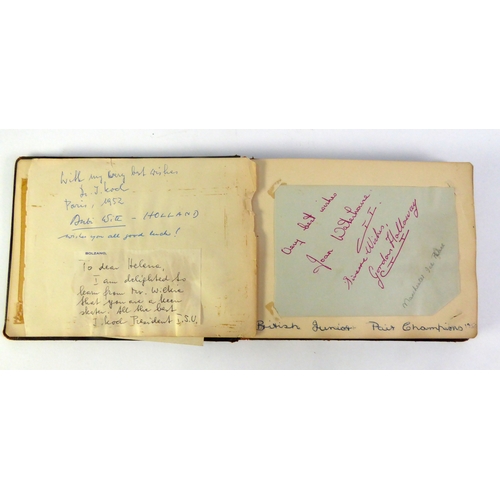 With my very best wishes
Dr. J. Koch
Paris, 1952
Witt - HOLLAND
wishes you all good luck!
To dear Helene,
I am delighted to
learn from Mr. Wilkie
that you are a keen
skater. All the best
J. Koch President I.S.U.
Very best wishes
Joan Waterhouse
Sincere Wishes
Gordon Holloway
British Junior Pair Champions